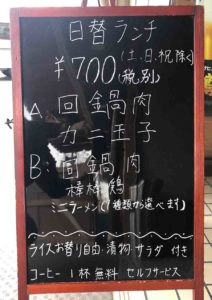 日替ランチ
¥700 (土、日、祝除く)
(税別)
A: 回鍋肉
カニ玉子
B: 回鍋肉
棒棒鶏
ミニラーメン(7種類から選べます)
ライスお替り自由・漬物・サラダ付き
コーヒー1杯無料 セルフサービス